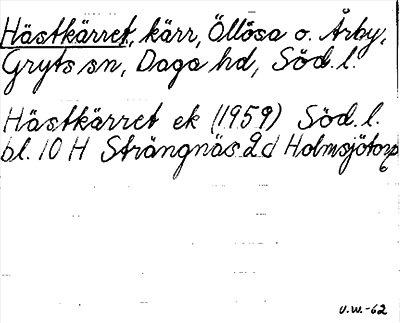 Hästkärret, kärr, Öllösa o. Årby,
Gryts sn, Daga hd, Söd. l.
Hästkärret ek (1959) Söd. l.
bl. 10 H Strängnäs 2d Holmsjötorp
U.W.-62